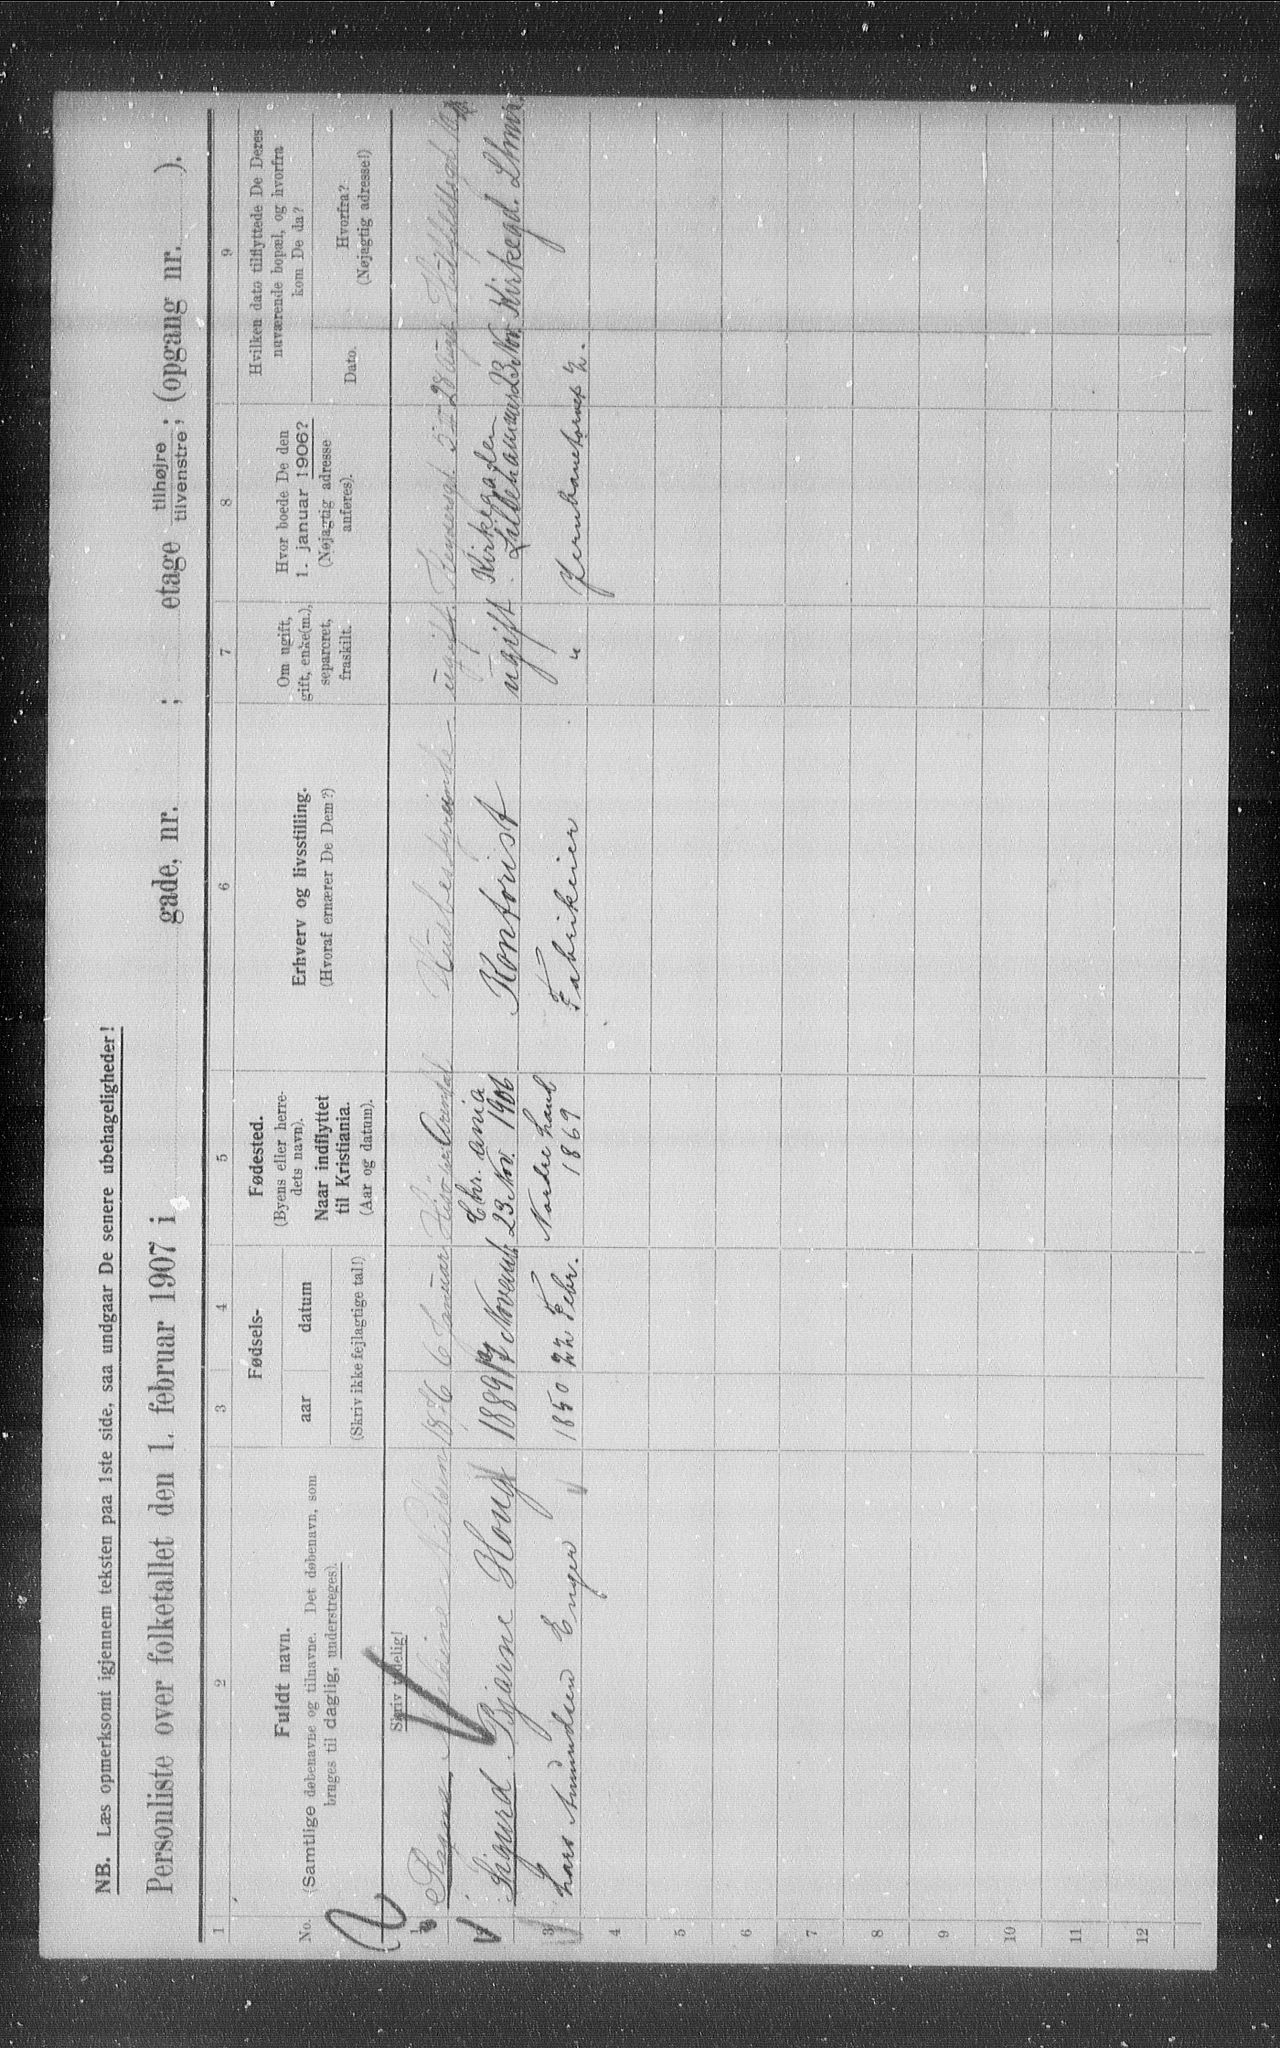 NB. Læs opmerksomt igjennem teksten paa 1ste side, saa undgaar De senere ubehageligheder!
Personliste over folketallet den 1. februar 1907 i gade, nr. ; etage tilhøjre tilvenstre ; (opgang nr. ).
1 2 3 4 5 6 7 8 9
No.
Fuldt navn.
(Samtlige døbenavne og tilnavne. Det døbenavn, som
bruges til daglig, understreges).
Skriv tydelig!
Fødsels-
aar datum
(Skriv ikke fejlagtige tal!)
Fødested.
(Byens eller herre-
dets navn).
Naar indflyttet
til Kristiania.
(Aar og datum).
Erhverv og livsstilling.
(Hvoraf ernærer De Dem?)
Om ugift,
gift, enke(m.),
separeret,
fraskilt.
Hvor boede De den
1. januar 1906?
(Nøjagtig adresse
anføres).
Hvilken dato tilflyttede De Deres
nuværende bopæl, og hvorfra
kom De da?
Dato.
Hvorfra?
(Nøjagtig adresse!)
1 Nielsen 1876 6 Januar Arendal Husbestyrerinde ugift
2 Sigurd Bjarne Houg 1889 Novemb. Chr.ania 23 Nov. 1906 Kontorist ugift Kirkegaden Lillehammer 23 Nov. Kirkegd. Lhmr.
3 Lars Amundsen Enger 1850 22 Febr. Nordre Land 1869 Fabrikeier " Jernbanetorvet 2.
4
5
6
7
8
9
10
11
12